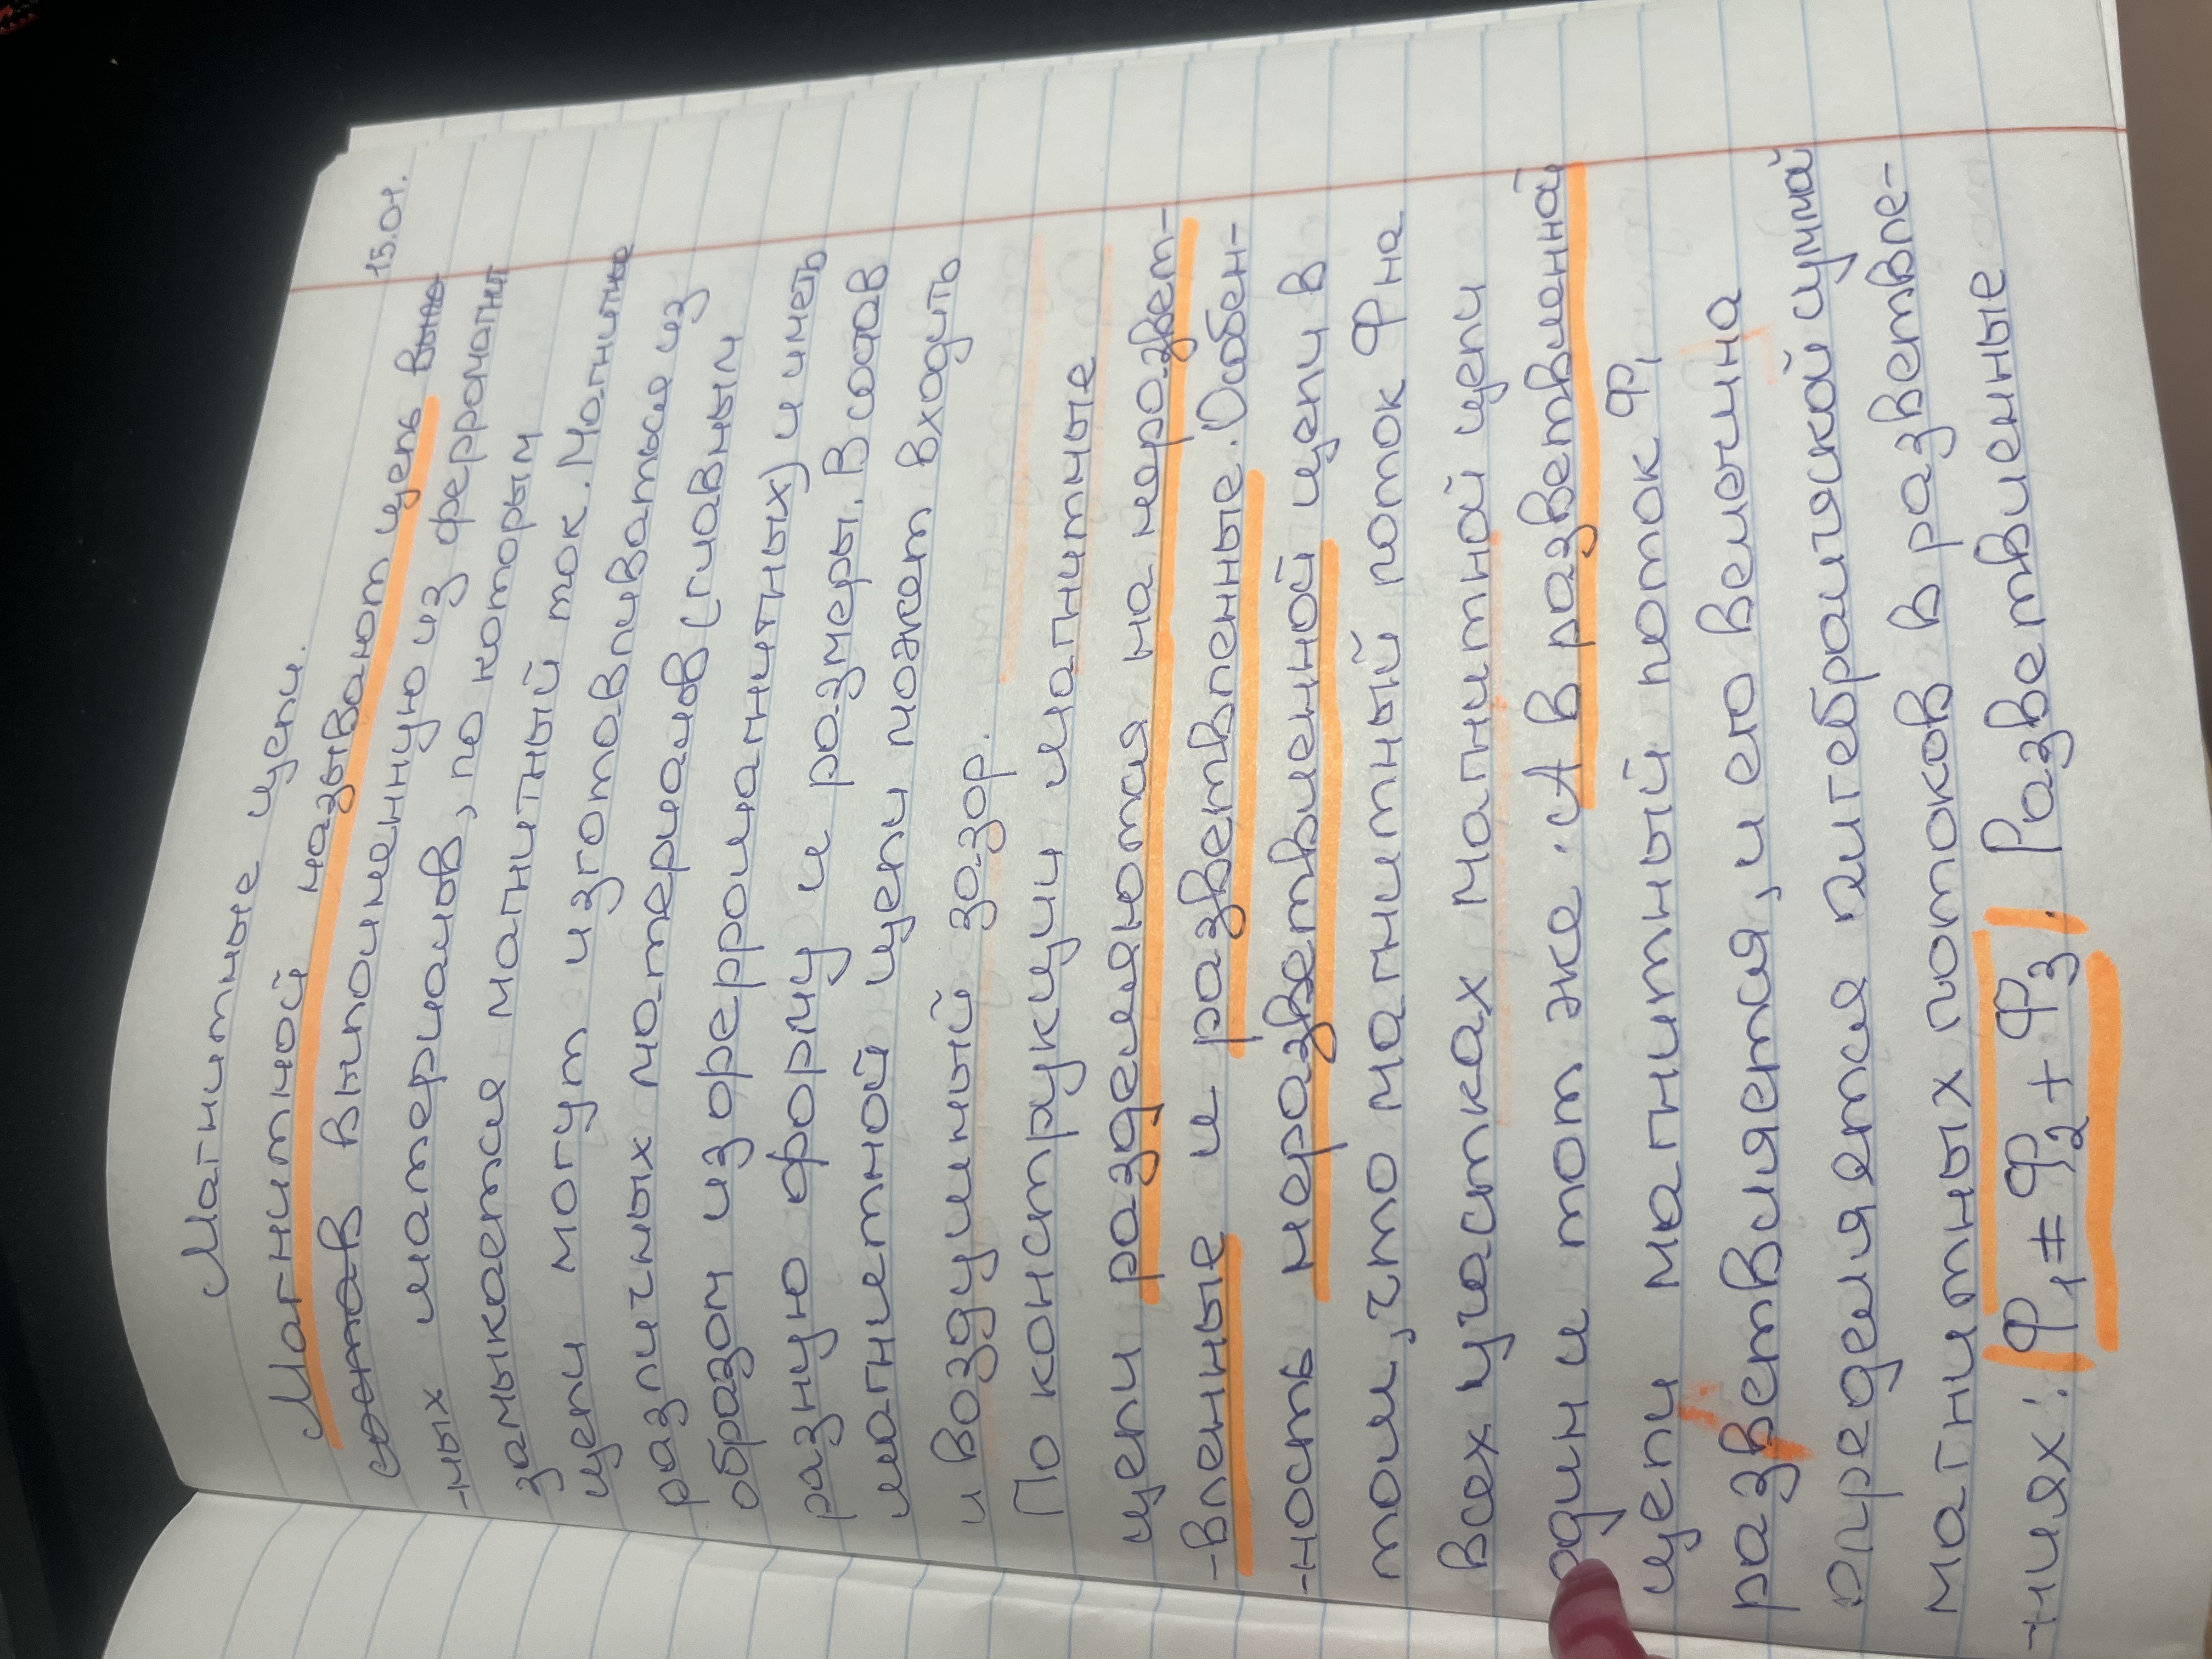 15.04.
Магнитные цепи.
Магнитной называют цепь
состав выполненную из ферромагнит
-ных материалов, по которым
замыкается магнитный ток. Магнитные
цепи могут изготавливаться из
различных материалов (главным
образом из ферромагнитных) и иметь
разную форму и размеры. В состав
магнитной цепи может входить
и воздушный зазор.
По конструкции магнитные
цепи разделяются на неразвет-
-вленные и разветвленные. Особен-
-ность неразветвленной цепи в
том, что магнитный поток Ф на
всех участках магнитной цепи
один и тот же. А в разветвленной
цепи магнитный поток Ф₁
разветвляется, и его величина
определяется алгебраической суммой
магнитных потоков в разветвле-
-ниях: |Ф₁ = Ф₂ + Ф₃|. Разветвленные